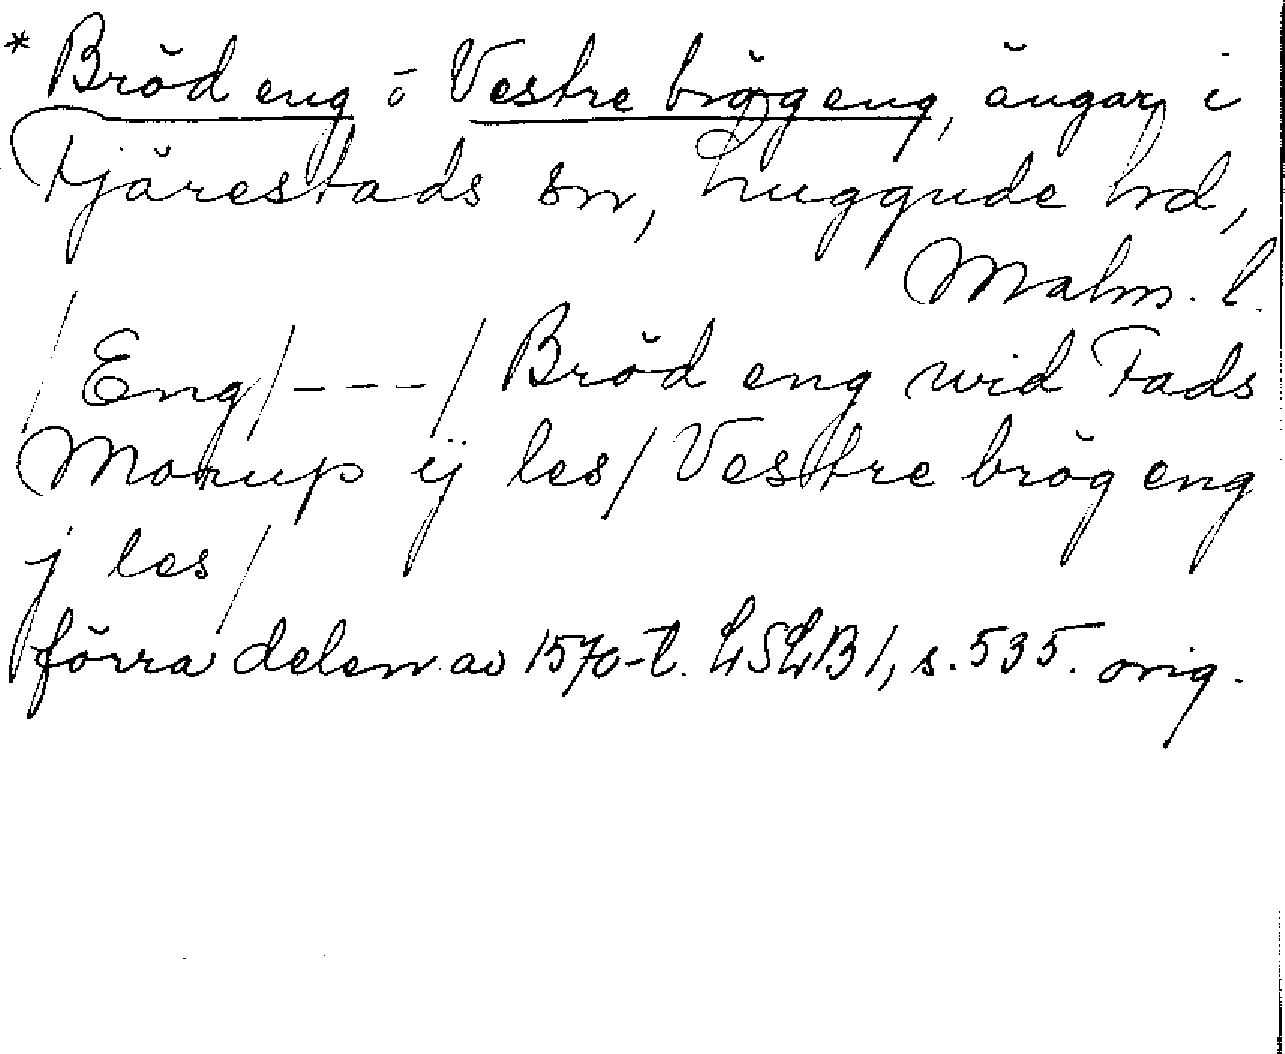 * Bröd eng o Vestre brög eng, ängar i
Fjärestads sn, Luggude hd,
Malm. l.
/ Eng / --- / Bröd eng wid Fads
Morup ij les / Vestre brög eng
j les /
förra delen av 1570-t. LSLB 1, s. 535. orig.